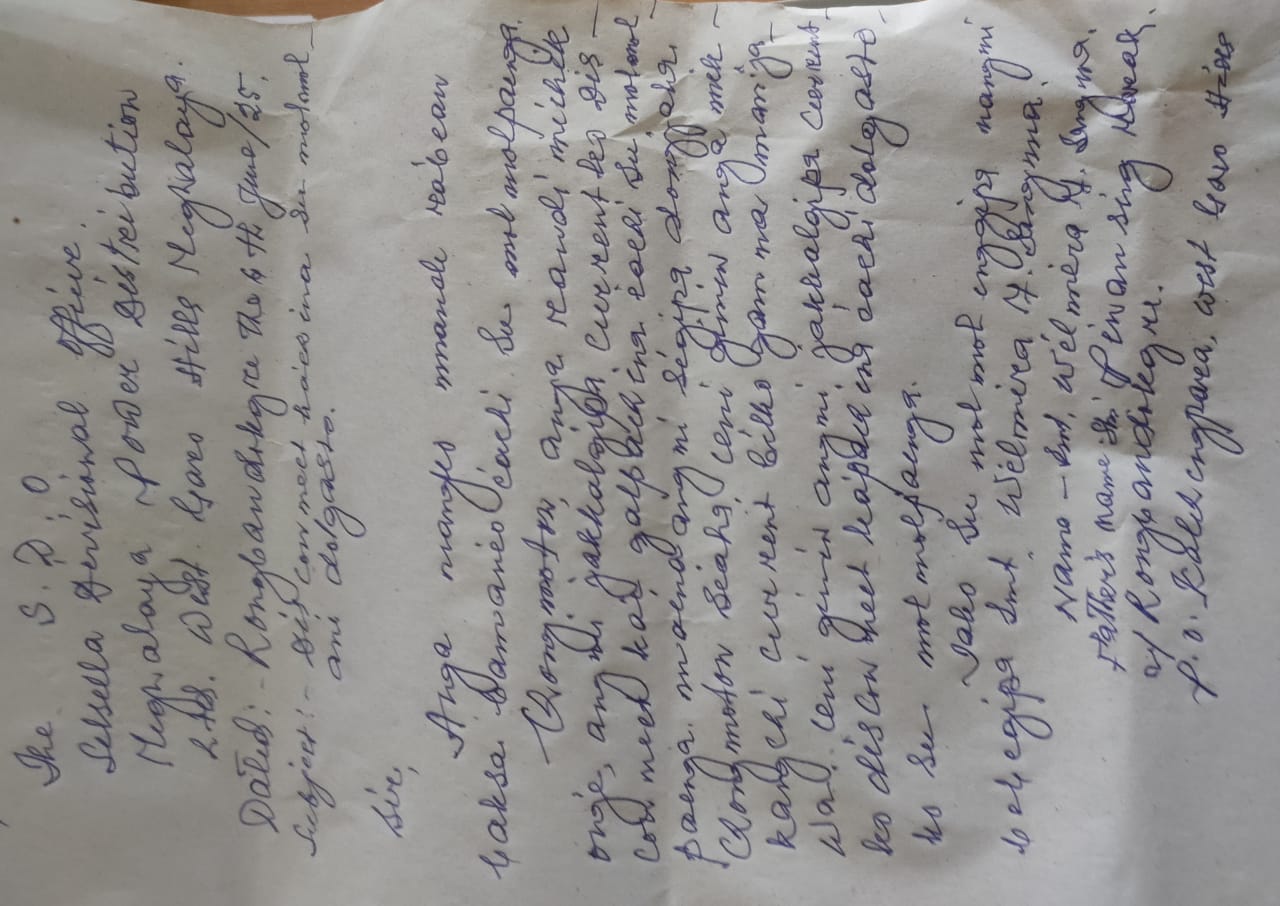 The S.D.O
Selsella Devisional office.
Meghalaya Power Distribution
Ltd. West Garo Hills Meghalaya.
Dated:- Rongbandikgre The 6 th June/25.
Subject:- Dis conneet ka·esina su·molmol-
ani dolgaeto.
Sir,
Anga nanges mande
saksa bamanieo iachi su·molmolpaenga.
Chongmotni, anga randi michik
onge, angni jakkalgipa current ko dis-
connect kaa galpakina iachi su·molmol-
paenga. maenaangni segipa dongjaha
Chongmoton seaha, uni gimin anga mik-
kangchi current bilko gamna man·ja-
wa. uni gimin angni jakkalgipa current
ko disconneet kapakina iachi dolgaeto
ko su·molmolpaenga.
Iako su·molmol enggipa nangni
Smt, Wilmina M. Sangma.
Name - Smt, Wilmina M. Sangma.
Father's name Shri Pewansing Marak.
a/ Rongbandikgre.
P.O. Rabhengpara, West Garo Hills